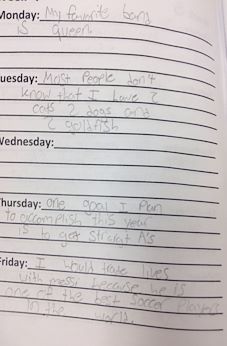 Monday: My favorite band
is queen
Tuesday: Most People don't
know that I have 2
cats 2 dogs and
2 goldfish
Wednesday:
Thursday: one goal I Plan
to accomplish this year
is to get Straight A's
Friday: I would trade lives
with messi because he is
one of the best Soccer Players
in the world.